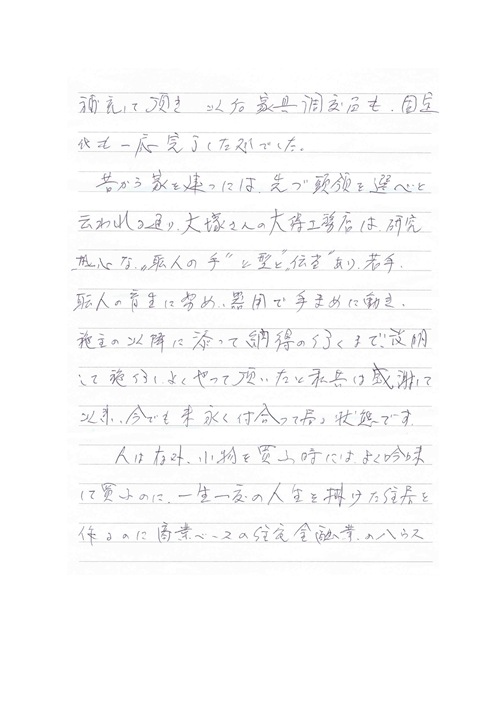 補充して頂き 以後家具調度品も、固定
代も一応完了した形でした。
昔から家を建つには、先づ頭領を選べと
云われる通り、大塚さんの大得工務店は、研究
熱心な、"職人の手"と型と"伝習"あり、若手、
職人の育生に努め、器用で手まめに動き、
施主の以降に添って納得の行くまで、説明
して施行し、よくやって頂いたと私共は感謝して
以来、今でも末永く付合って居る状態です。
人は存外、小物を買ふ時にはよく吟味
して買ふのに、一生一度の人生を掛けた住居を
作るのに商業ベースの住宅金融業のハウス